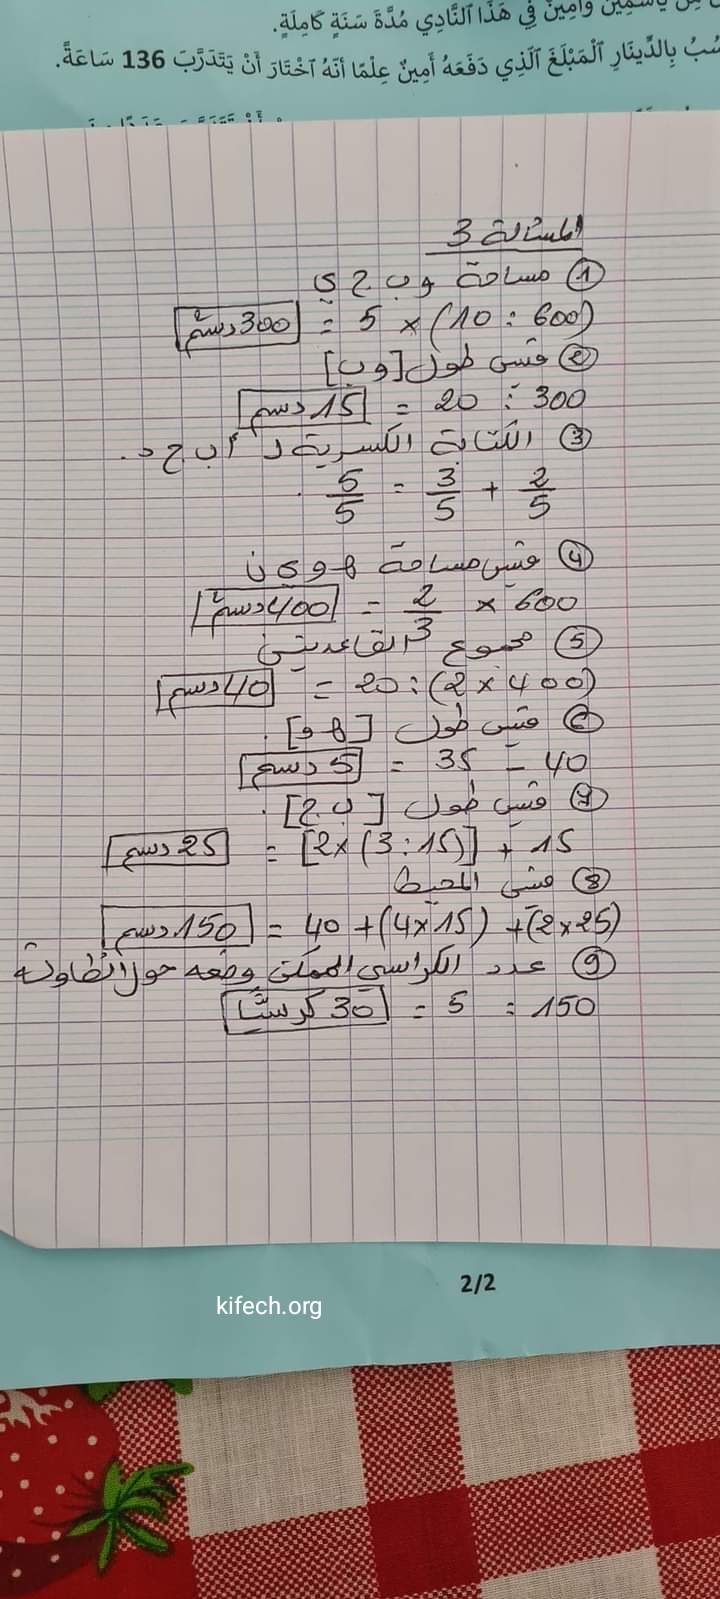 يَاسْمِينَ وَأَمِينَ فِي هَذَا ٱلنَّادِي مُدَّةَ سَنَةٍ كَامِلَةٍ.
بِالدِّينَارِ ٱلْمَبْلَغَ ٱلَّذِي دَفَعَهُ أَمِينٌ عِلْمًا أَنَّهُ ٱخْتَارَ أَنْ يَتَدَرَّبَ 136 سَاعَةً.
المسألة 3
① مساحة و ب ج ي
(600 : 10) × 5 = 300 دسم²
② قيس طول [وب]
300 : 20 = 15 دسم
③ الكتابة الكسرية لـ أ ب ج د.
2/5 + 3/5 = 5/5
④ قيس مساحة ه و ي ن
600 × 2/3 = 400 دسم²
⑤ مجموع القاعدتين
(400 × 2) : 20 = 40 دسم
⑥ قيس طول [ه و].
40 - 35 = 5 دسم
⑦ قيس طول [ب ج].
15 + [(15 : 3) × 2] = 25 دسم
⑧ قيس المحيط
(25 × 2) + (15 × 4) + 40 = 150 دسم
⑨ عدد الكراسي الممكن وضعه حول الطاولة
150 : 5 = 30 كرسيًّا
2/2
kifech.org